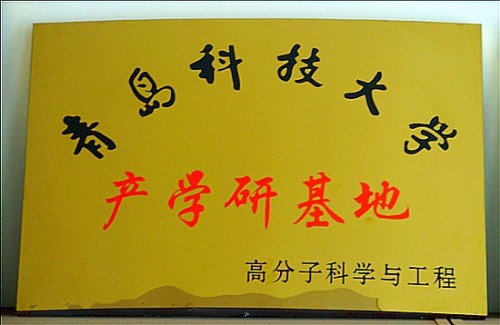 青岛科技大学
产学研基地
高分子科学与工程